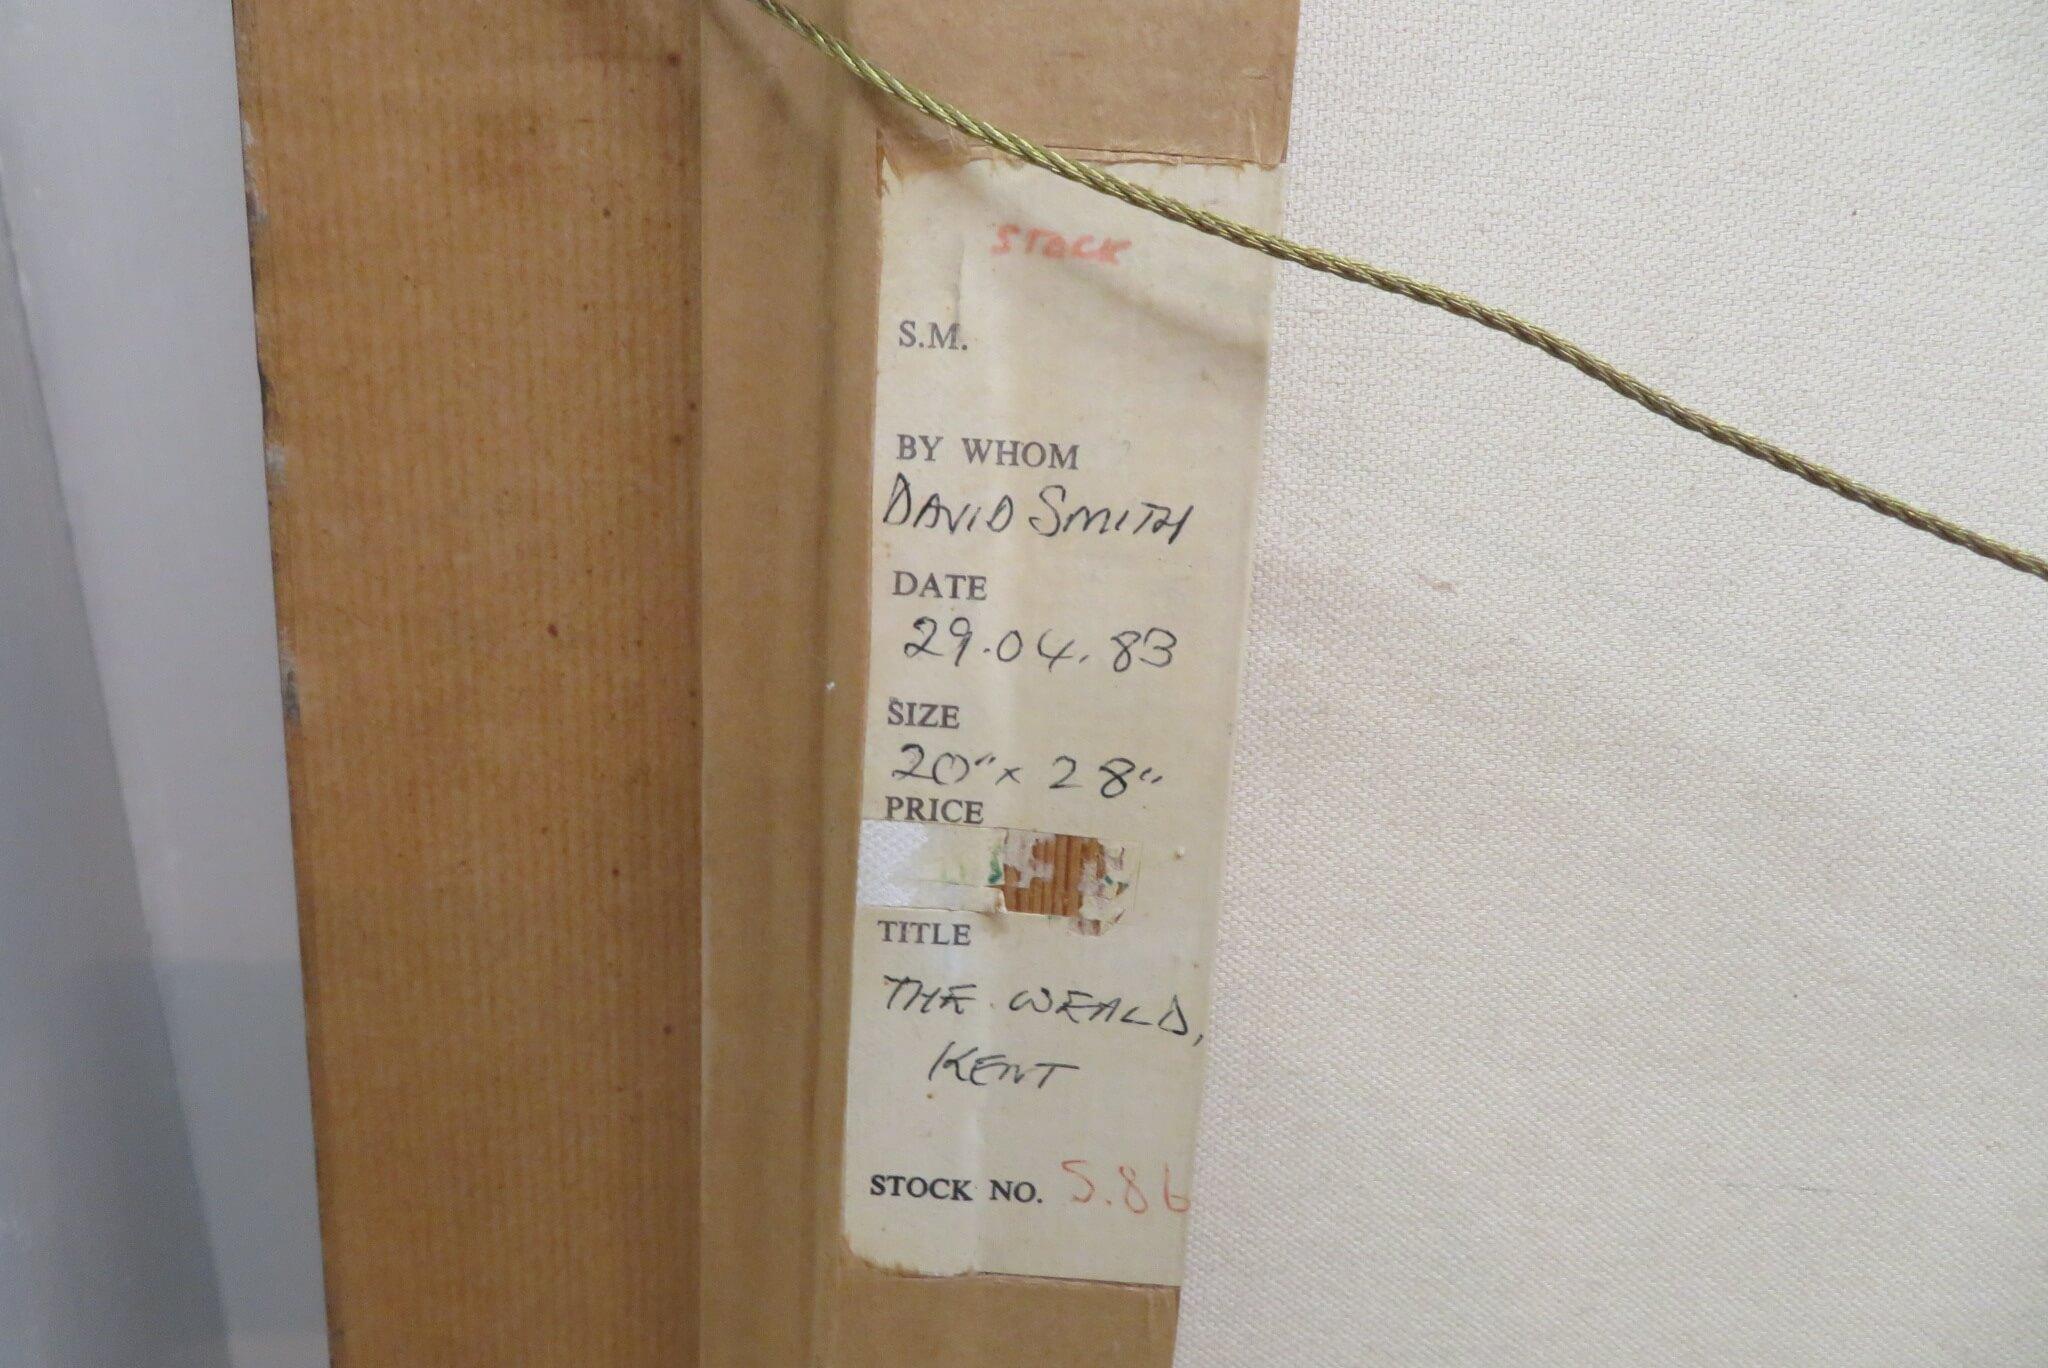 STOCK
S.M.
BY WHOM
DAVID SMITH
DATE
29.04.83
SIZE
20" x 28"
PRICE
TITLE
THE WEALD,
KENT
STOCK NO. S.86